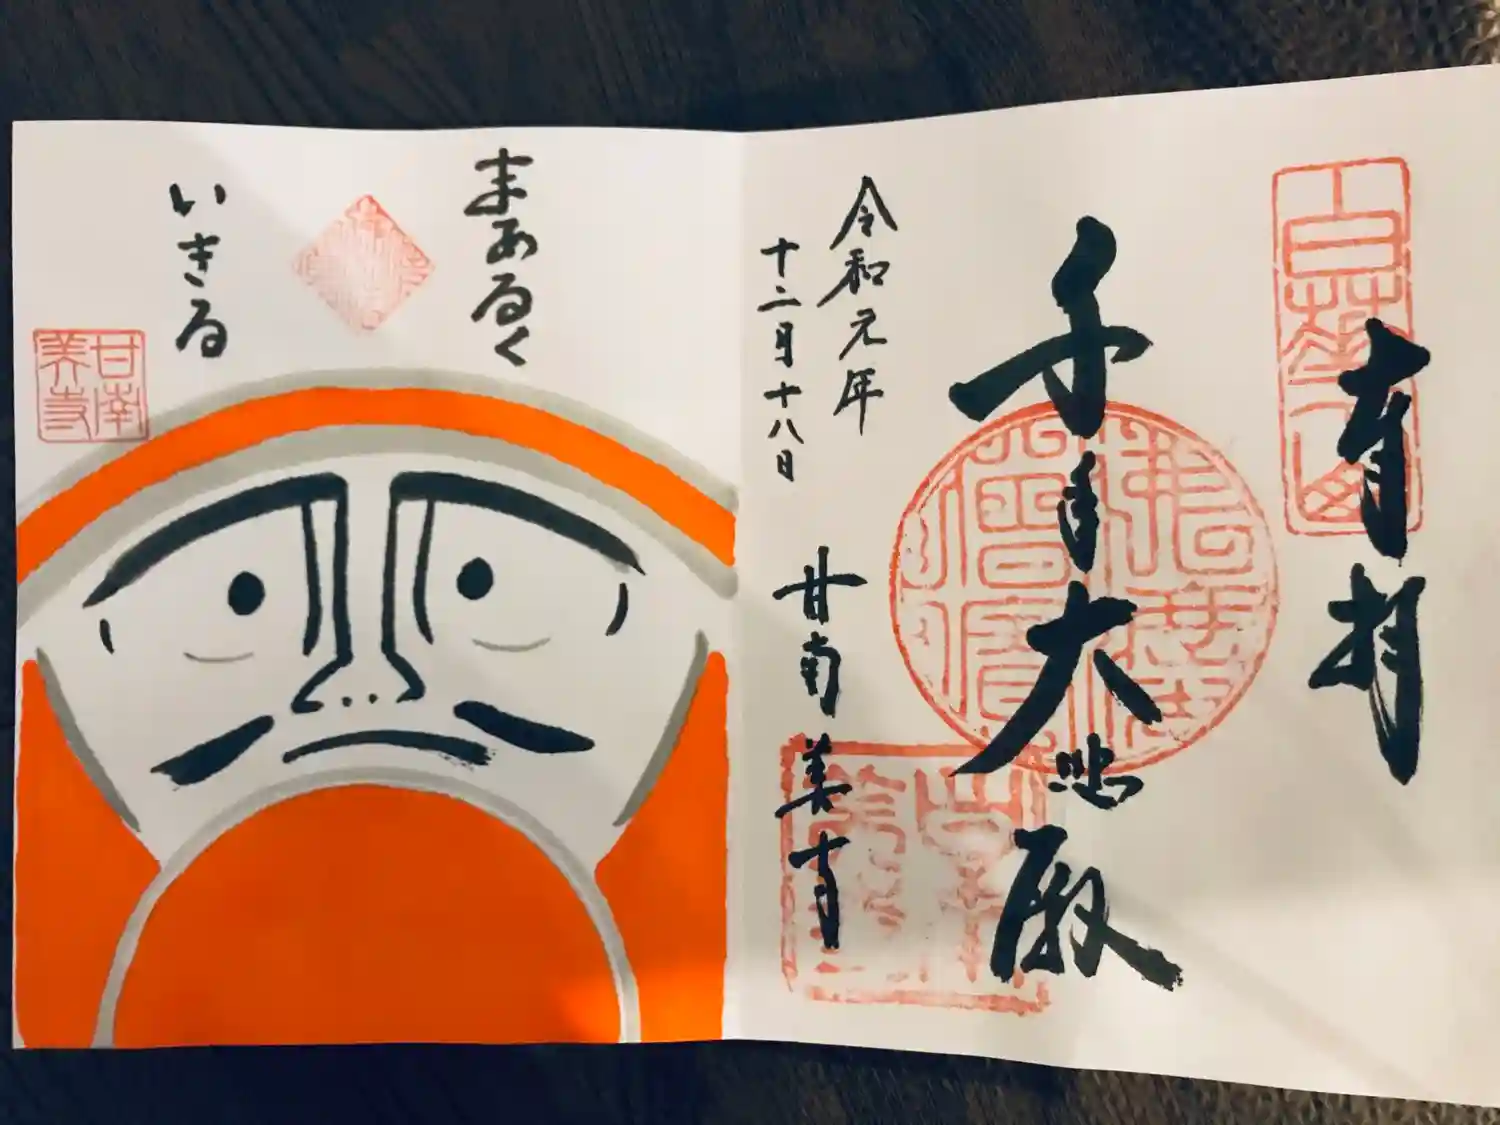 奉拝
千手大悲殿
令和元年
十二月十八日
甘南美寺
佛法僧寶
まあるく
いきる
甘南
美寺